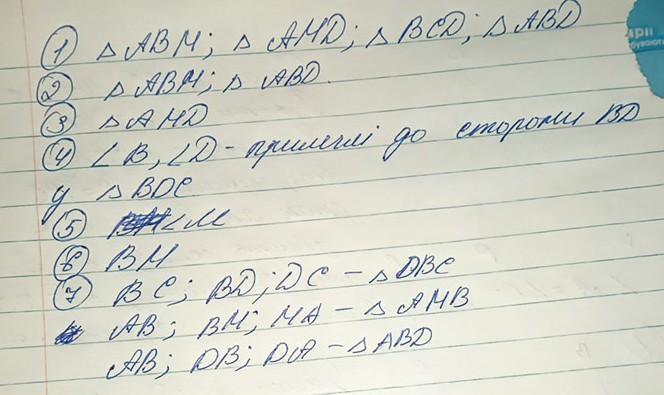 1 △ ABM; △ AMD; △ BCD; △ ABD
2 △ ABM; △ ABD.
3 △ AMD
4 ∠B, ∠D - прилеглі до сторони BD
у △ BDC
5 ∠M
6 BM
7 BC; BD; DC - △ DBC
AB; BM; MA - △ AMB
AB; DB; DA - △ ABD